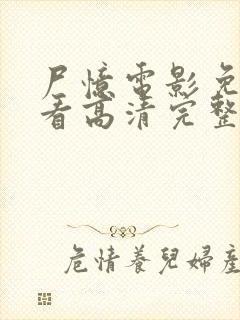 尸憶電影免
看高清完整
危情養兒婦產